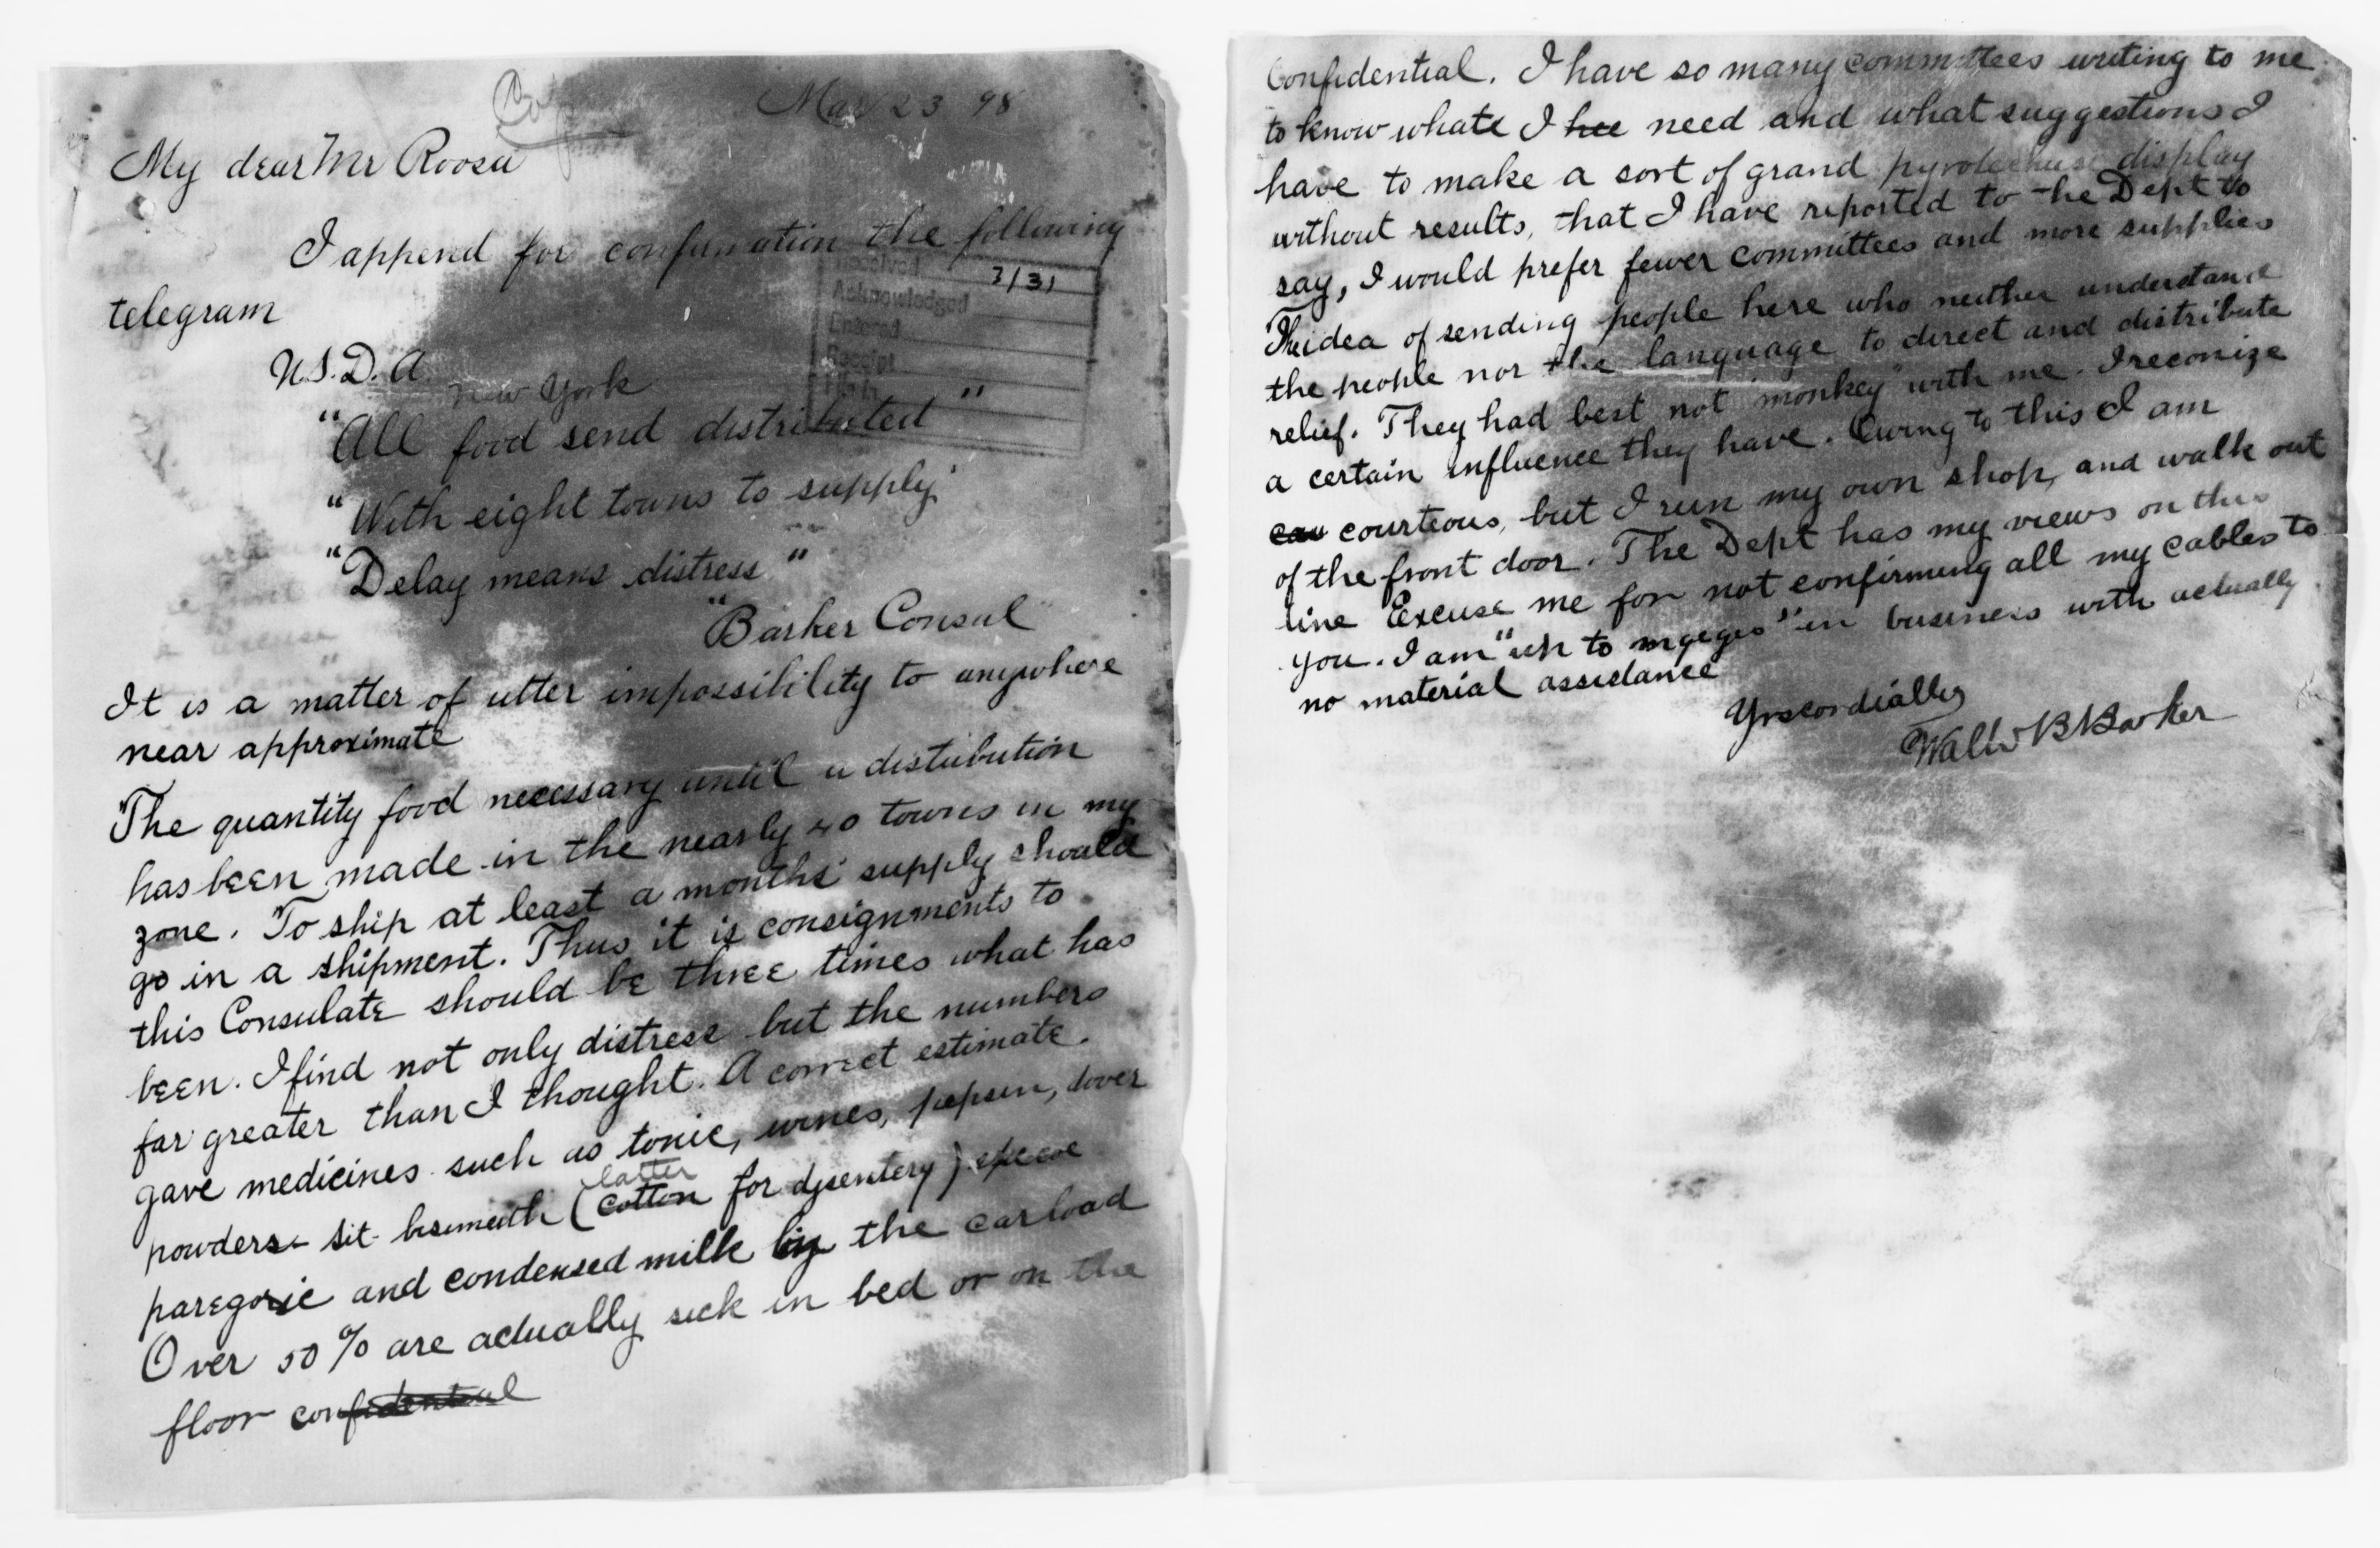 Mar 23 98
My dear Mr Roosa
I append for confirmation the following
telegram
3/31
Acknowledged
Entered
Receipt
File in
U.S.D.A.
New York
"All food send distributed"
"With eight towns to supply
"Delay means distress"
"Barker Consul"
It is a matter of utter impossibility to anywhere
near approximate
The quantity food necessary until a distribution
has been made in the nearly 40 towns in my
zone. To ship at least a months' supply should
go in a shipment. Thus it is consignments to
this Consulate should be three times what has
been. I find not only distress but the numbers
far greater than I thought. A correct estimate.
gave medicines such as tonic, wines, pepsin, dover
latter
powders sit bismuth (cotton for dysentery)
paregoric and condensed milk by the carload
Over 50% are actually sick in bed or on the
floor confidential
Confidential. I have so many committees writing to me
to know whate I hee need and what suggestions I
have to make a sort of grand display
without results, that I have reported to the Dept to
say, I would prefer fewer committees and more supplies
The idea of sending people here who neither understand
the people nor the language to direct and distribute
relief. They had best not "monkey" with me. I reconize
a certain influence they have. Owing to this I am
cou courteous, but I run my own shop, and walk out
of the front door. The Dept has my views on this
line Excuse me for not confirming all my cables to
you. I am "up to in business with actually
no material assistance
Yrs cordially
Walter B Barker